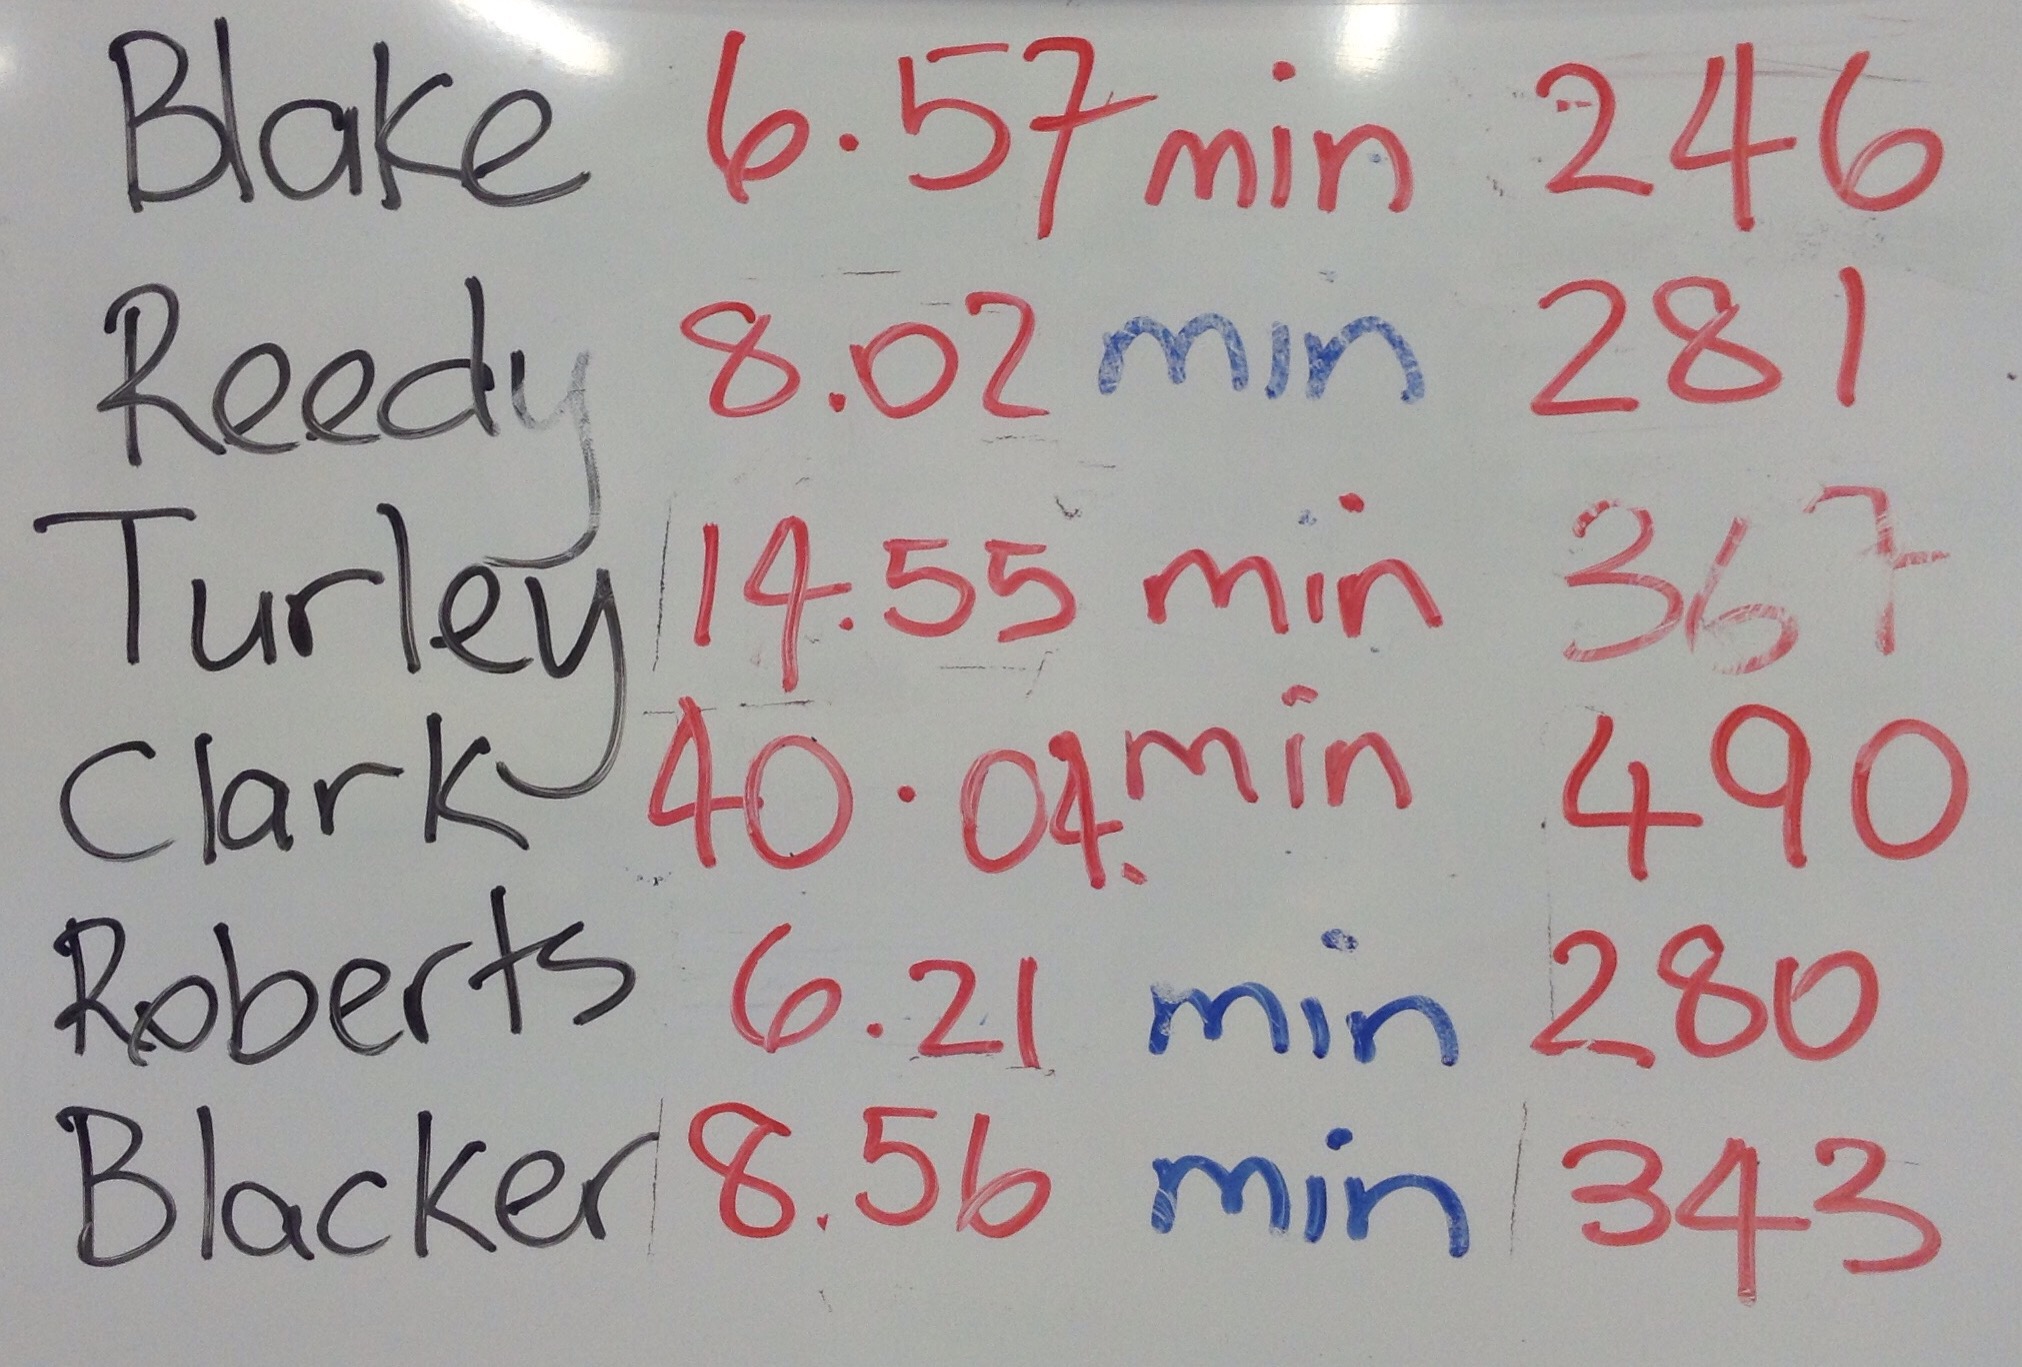 Blake 6.57 min 246
Reedy 8.02 min 281
Turley 14.55 min 367
Clark 40.04 min 490
Roberts 6.21 min 280
Blacker 8.56 min 343